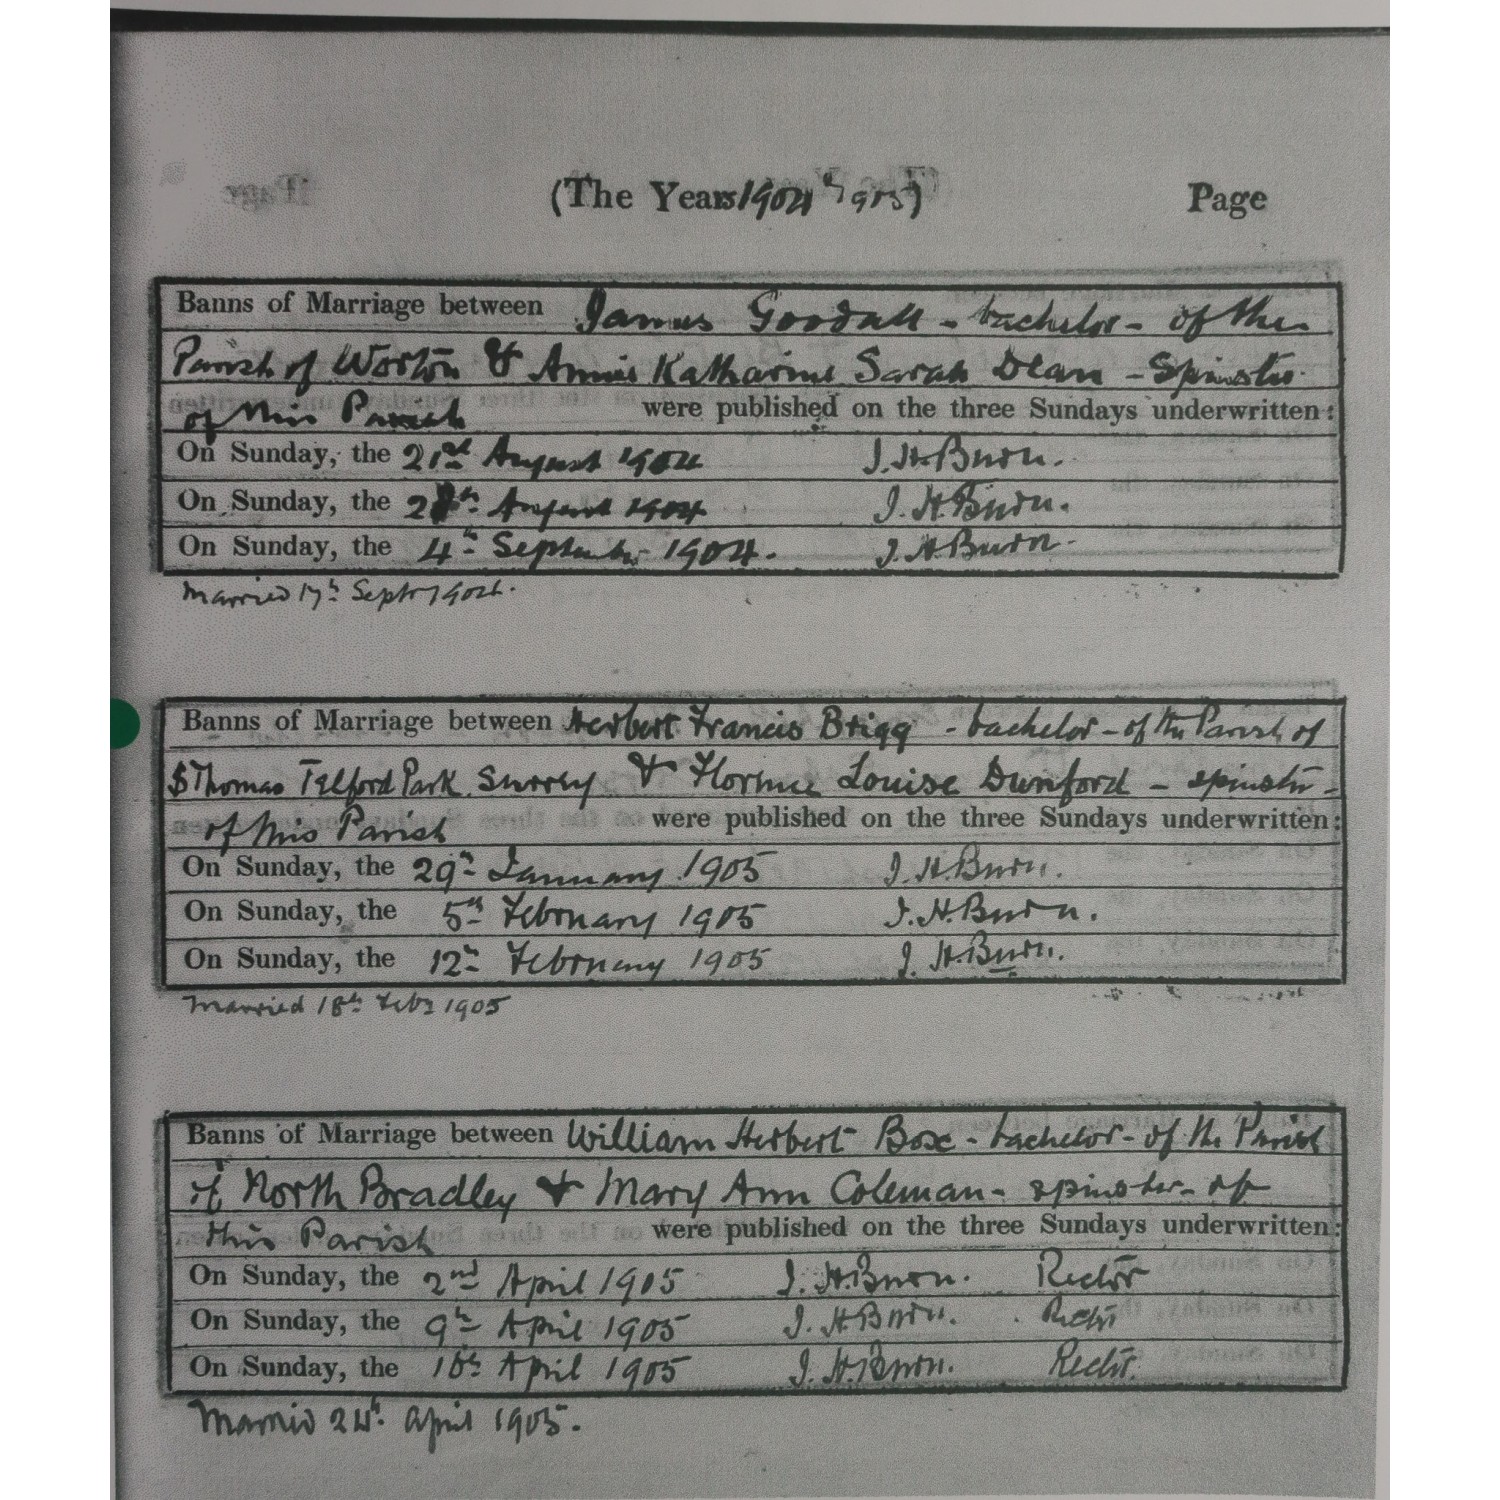 (The Years 1904 & 1905) Page
Banns of Marriage between James Goodall - bachelor - of the
Parish of Worton & Annie Katharine Sarah Dean - Spinster
of this Parish were published on the three Sundays underwritten:
On Sunday, the 21st August 1904 J. H. Burn.
On Sunday, the 28th August 1904 J. H. Burn.
On Sunday, the 4th September 1904. J. H. Burn.
Married 17th Septr 1904.
Banns of Marriage between Herbert Francis Brigg - bachelor - of the Parish of
St Thomas Telford Park Surrey & Florence Louise Dunford - spinster -
of this Parish were published on the three Sundays underwritten:
On Sunday, the 29th January 1905 J. H. Burn.
On Sunday, the 5th February 1905 J. H. Burn.
On Sunday, the 12th February 1905 J. H. Burn.
Married 18th Feby 1905
Banns of Marriage between William Herbert Box - bachelor - of the Parish
of North Bradley & Mary Ann Coleman - spinster - of
this Parish were published on the three Sundays underwritten:
On Sunday, the 2nd April 1905 J. H. Burn. Rector
On Sunday, the 9th April 1905 J. H. Burn. Rector
On Sunday, the 16th April 1905 J. H. Burn. Rector.
Married 24th April 1905.